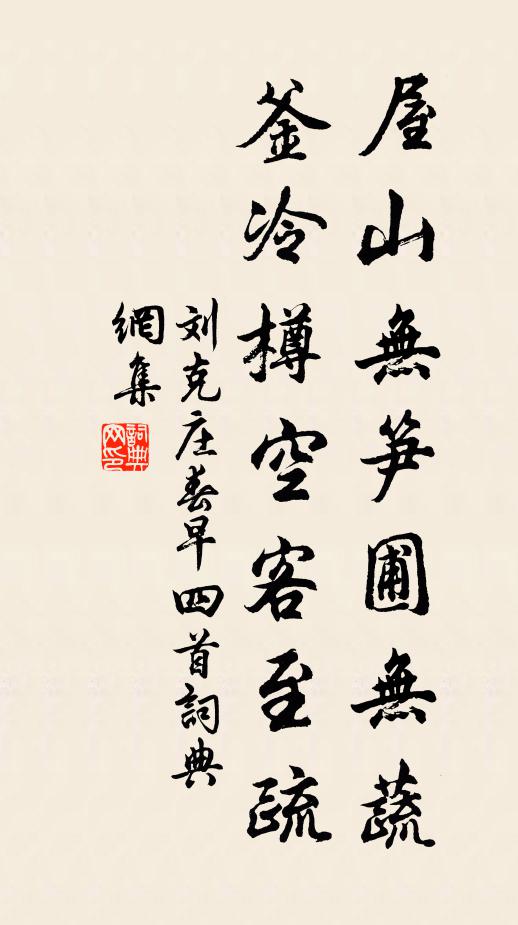 屋山無笋圃無蔬
釜冷樽空客至疏
刘克庄春早四首詞典
網集
詞典
网印